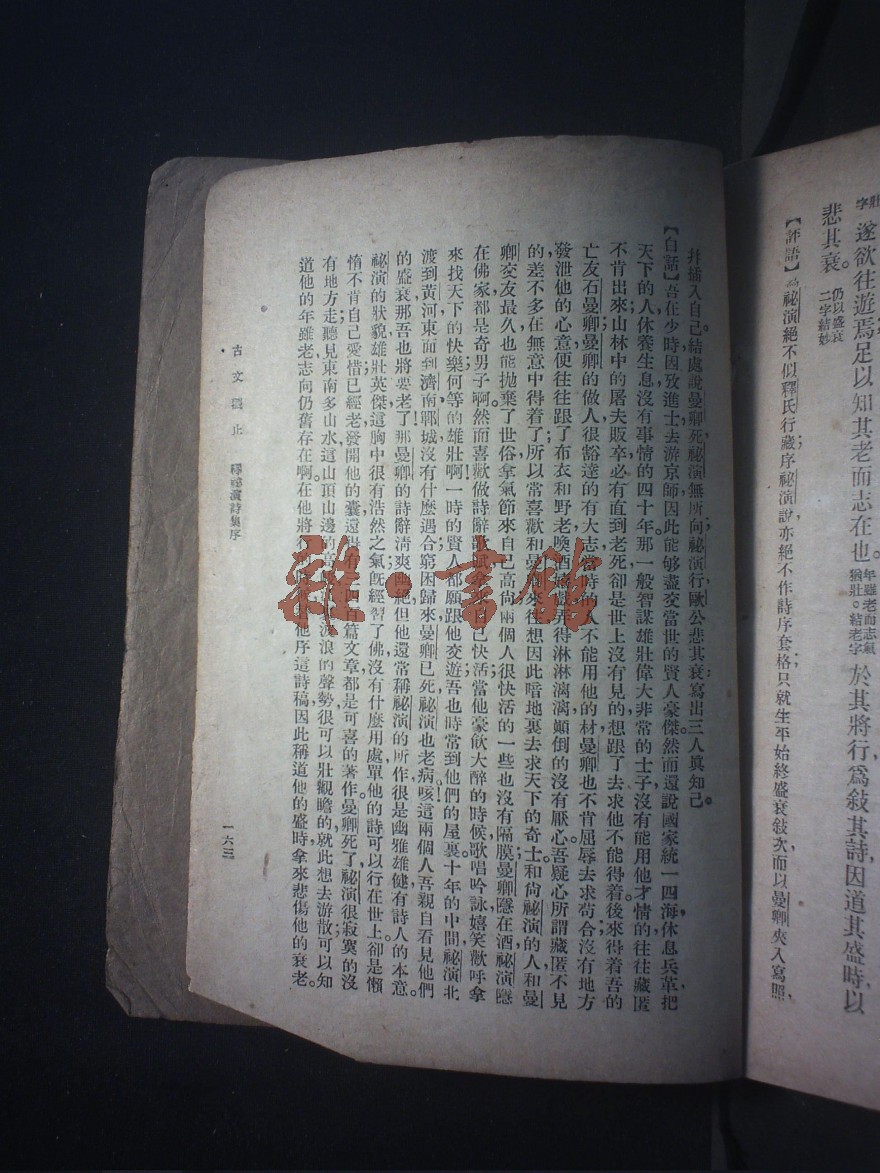 壯字
遂欲往遊焉足以知其老而志在也。
年雖老而志氣
猶壯。結老字
於其將行爲敍其詩因道其盛時以
悲其衰。
仍以盛衰
二字結妙
【評語】祕演絕不似釋氏行藏序祕演說亦絕不作詩序套格只就生平始終盛衰敍次而以曼卿夾入寫照
幷插入自己。結處說曼卿死祕演無所向祕演行歐公悲其衰寫出三人眞知己。
【白話】吾在少時因攷進士去游京師因此能够盡交當世的賢人豪傑然而還說國家統一四海休息兵革把
天下的人休養生息沒有事情的四十年那一般智謀雄壯偉大非常的士子沒有能用他才情的往往藏匿
不肯出來山林中的屠夫販卒必有直到老死卻是世上沒有見的想跟了去求他不能得着後來得着吾的
亡友石曼卿曼卿的做人很豁達的有大志當時的人不能用他的材曼卿也不肯屈辱去求苟合沒有地方
發泄他的心意便往往跟了布衣和野老喚酒嬉戲弄得淋淋漓漓顚倒的沒有厭心。吾疑心所謂藏匿不見
的差不多在無意中得着了所以常喜歡和曼卿來往想因此暗地裏去求天下的奇士和尙祕演的人和曼
卿交友最久也能拋棄了世俗拿氣節來自己高尙兩個人很快活的一些也沒有隔膜曼卿隱在酒祕演隱
在佛家都是奇男子啊。然而喜歡做詩辭自己快活當他豪飲大醉的時候歌唱吟詠嬉笑歡呼拿
來找天下的快樂何等的雄壯啊！一時的賢人都願跟他交遊吾也時常到他們的屋裏十年的中間祕演北
渡到黃河東面到濟南鄆城沒有什麼遇合窮困歸來曼卿已死祕演也老病咳這兩個人吾親自看見他們
的盛衰那吾也將要老了！那曼卿的詩辭淸爽絕但他還常稱祕演的所作很是幽雅雄健有詩人的本意。
祕演的狀貌雄壯英傑這胸中很有浩然之氣旣經習了佛沒有什麼用處單他的詩可以行在世上卻是懶
惰不肯自己愛惜已經老發開他的囊還有百篇文章都是可喜的著作曼卿死了祕演很寂寞的沒
有地方走聽見東南多山水這山頂山邊的浪的聲勢很可以壯觀瞻的就此想去游散可以知
道他的年雖老志向仍舊存在啊在他將行他序這詩稿因此稱道他的盛時拿來悲傷他的衰老。
古文觀止　釋祕演詩集序
一六三
雜·書館